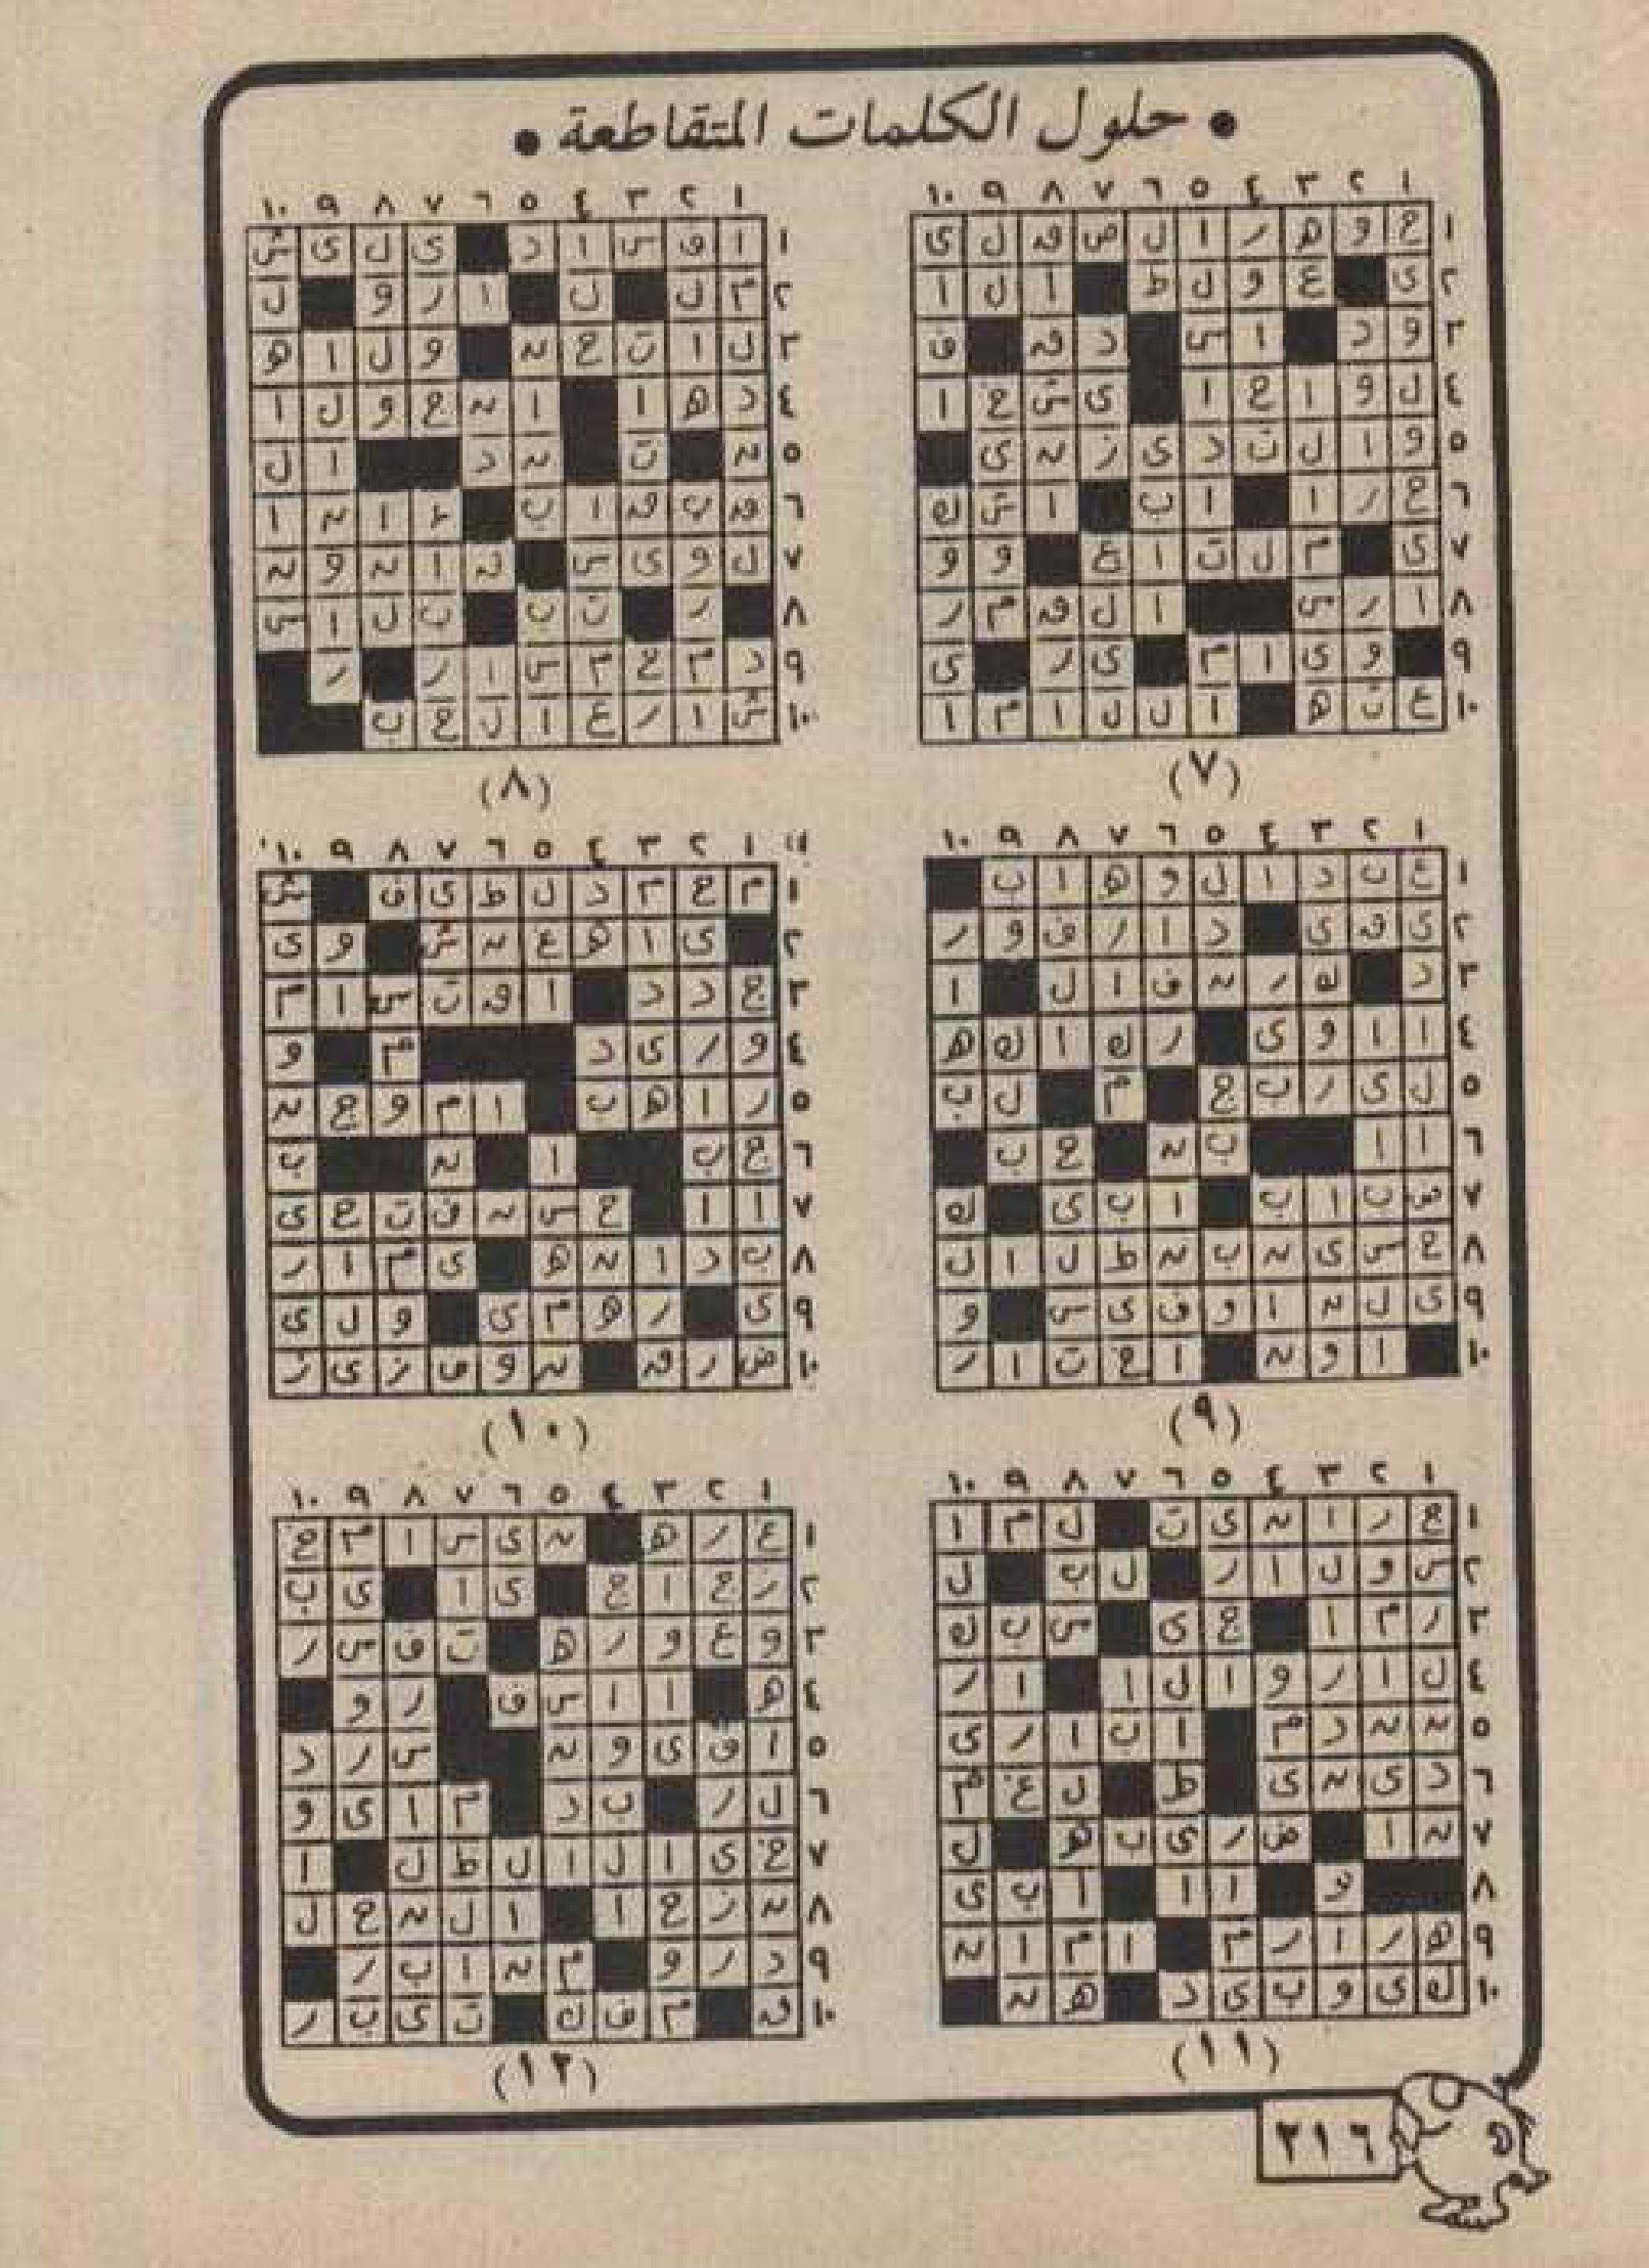 • حلول الكلمات المتقاطعة •
١ ٢ ٣ ٤ ٥ ٦ ٧ ٨ ٩ ١٠
١ ج و ه ر ا ل ص ق ل ى
٢ ى ع و ل ط ا ل ا
٣ و د ا س د ق ف
٤ ل و ا ح ا ى ش خ ا
٥ و ا ل ت د ى ز ن ى
٦ ج ر ا ا ب ا ش ك
٧ ى م ل ت ا ع و و
٨ ا ر س ا ل ق م ر
٩ و ى ا م ى ر ى
١٠ ع ت ه ا ل ل ا م ا
(٧)
١ ٢ ٣ ٤ ٥ ٦ ٧ ٨ ٩ ١٠
١ ا ق س ا د ى ل ى ش
٢ م ل ل ا ر و ل
٣ ل ا ت ح ن و ل ا ه
٤ د ه ا ا ن ج و ل ا
٥ ن ت ن د ا ل
٦ ق ب ق ا ب ء ا ن ا
٧ ل و ى س ن ا ن و ن
٨ ر ت ب ب ل ا س
٩ د م ع م س ا ر ر
١٠ ش ا ر ع ا ل ح ب
(٨)
١ ٢ ٣ ٤ ٥ ٦ ٧ ٨ ٩ ١٠
١ ع ب د ا ل و ه ا ب
٢ ى ق ى د ا ر ف و ر
٣ د ك ر ن ف ا ل ا
٤ ا ا و ى ر ك ا ك ه
٥ ل ى ر ب ج م ل ب
٦ ا ا ب ن ح ب
٧ ص ب ا ب ا ب ى ك
٨ ح س ى ن ب ن ط ل ا ل
٩ ى ل ن ا و ف ى س و
١٠ ا و ن ا خ ت ا ر
(٩)
١ ٢ ٣ ٤ ٥ ٦ ٧ ٨ ٩ ١٠
١ م ح م د ل ط ى ف ش
٢ ى ا ه ع ن ش و ى
٣ ج د د ا ق ت س ا م
٤ و ر ى د م و
٥ ر ا ه ب ا م و ج ن
٦ ج ب ا ن ب
٧ ا ا ح س ن ف ت ح ى
٨ ب د ا ن ه ى م ا ر
٩ ى ر ه م ى و ل ى
١٠ ض ر ق ن و ف ز ى ر
(١٠)
١ ٢ ٣ ٤ ٥ ٦ ٧ ٨ ٩ ١٠
١ ج ر ا ن ى ت ل م ا
٢ س و ل ا ر ل ب ل
٣ ر م ا ج ى س ب ك
٤ ل ا ر و ا ل ا ا ر
٥ ن ن د م ا ب ا ر ى
٦ د ى ن ى ط ل ع م
٧ ن ا ض ر ى ب ه ل
٨ و ا ا ا ب ى
٩ ه ر ا ر م ا م ا ن
١٠ ك ى و ب ى د ه ن
(١١)
١ ٢ ٣ ٤ ٥ ٦ ٧ ٨ ٩ ١٠
١ ع ر ه ن ى س ا م ح
٢ ز ج ا ج ى ا ى ب
٣ و ع و ر ه ت ف س ر
٤ ه ا ا س ف ر و
٥ ا ف ى و ن س ر د
٦ ل ر ب د م ا ى و
٧ خ ى ا ل ا ل ط ل ا
٨ ن ز ح ا ا ل ن ح ل
٩ د ر و م ن ا ب ر
١٠ ق م ف ك ت ى ب ر
(١٢)
٢١٦